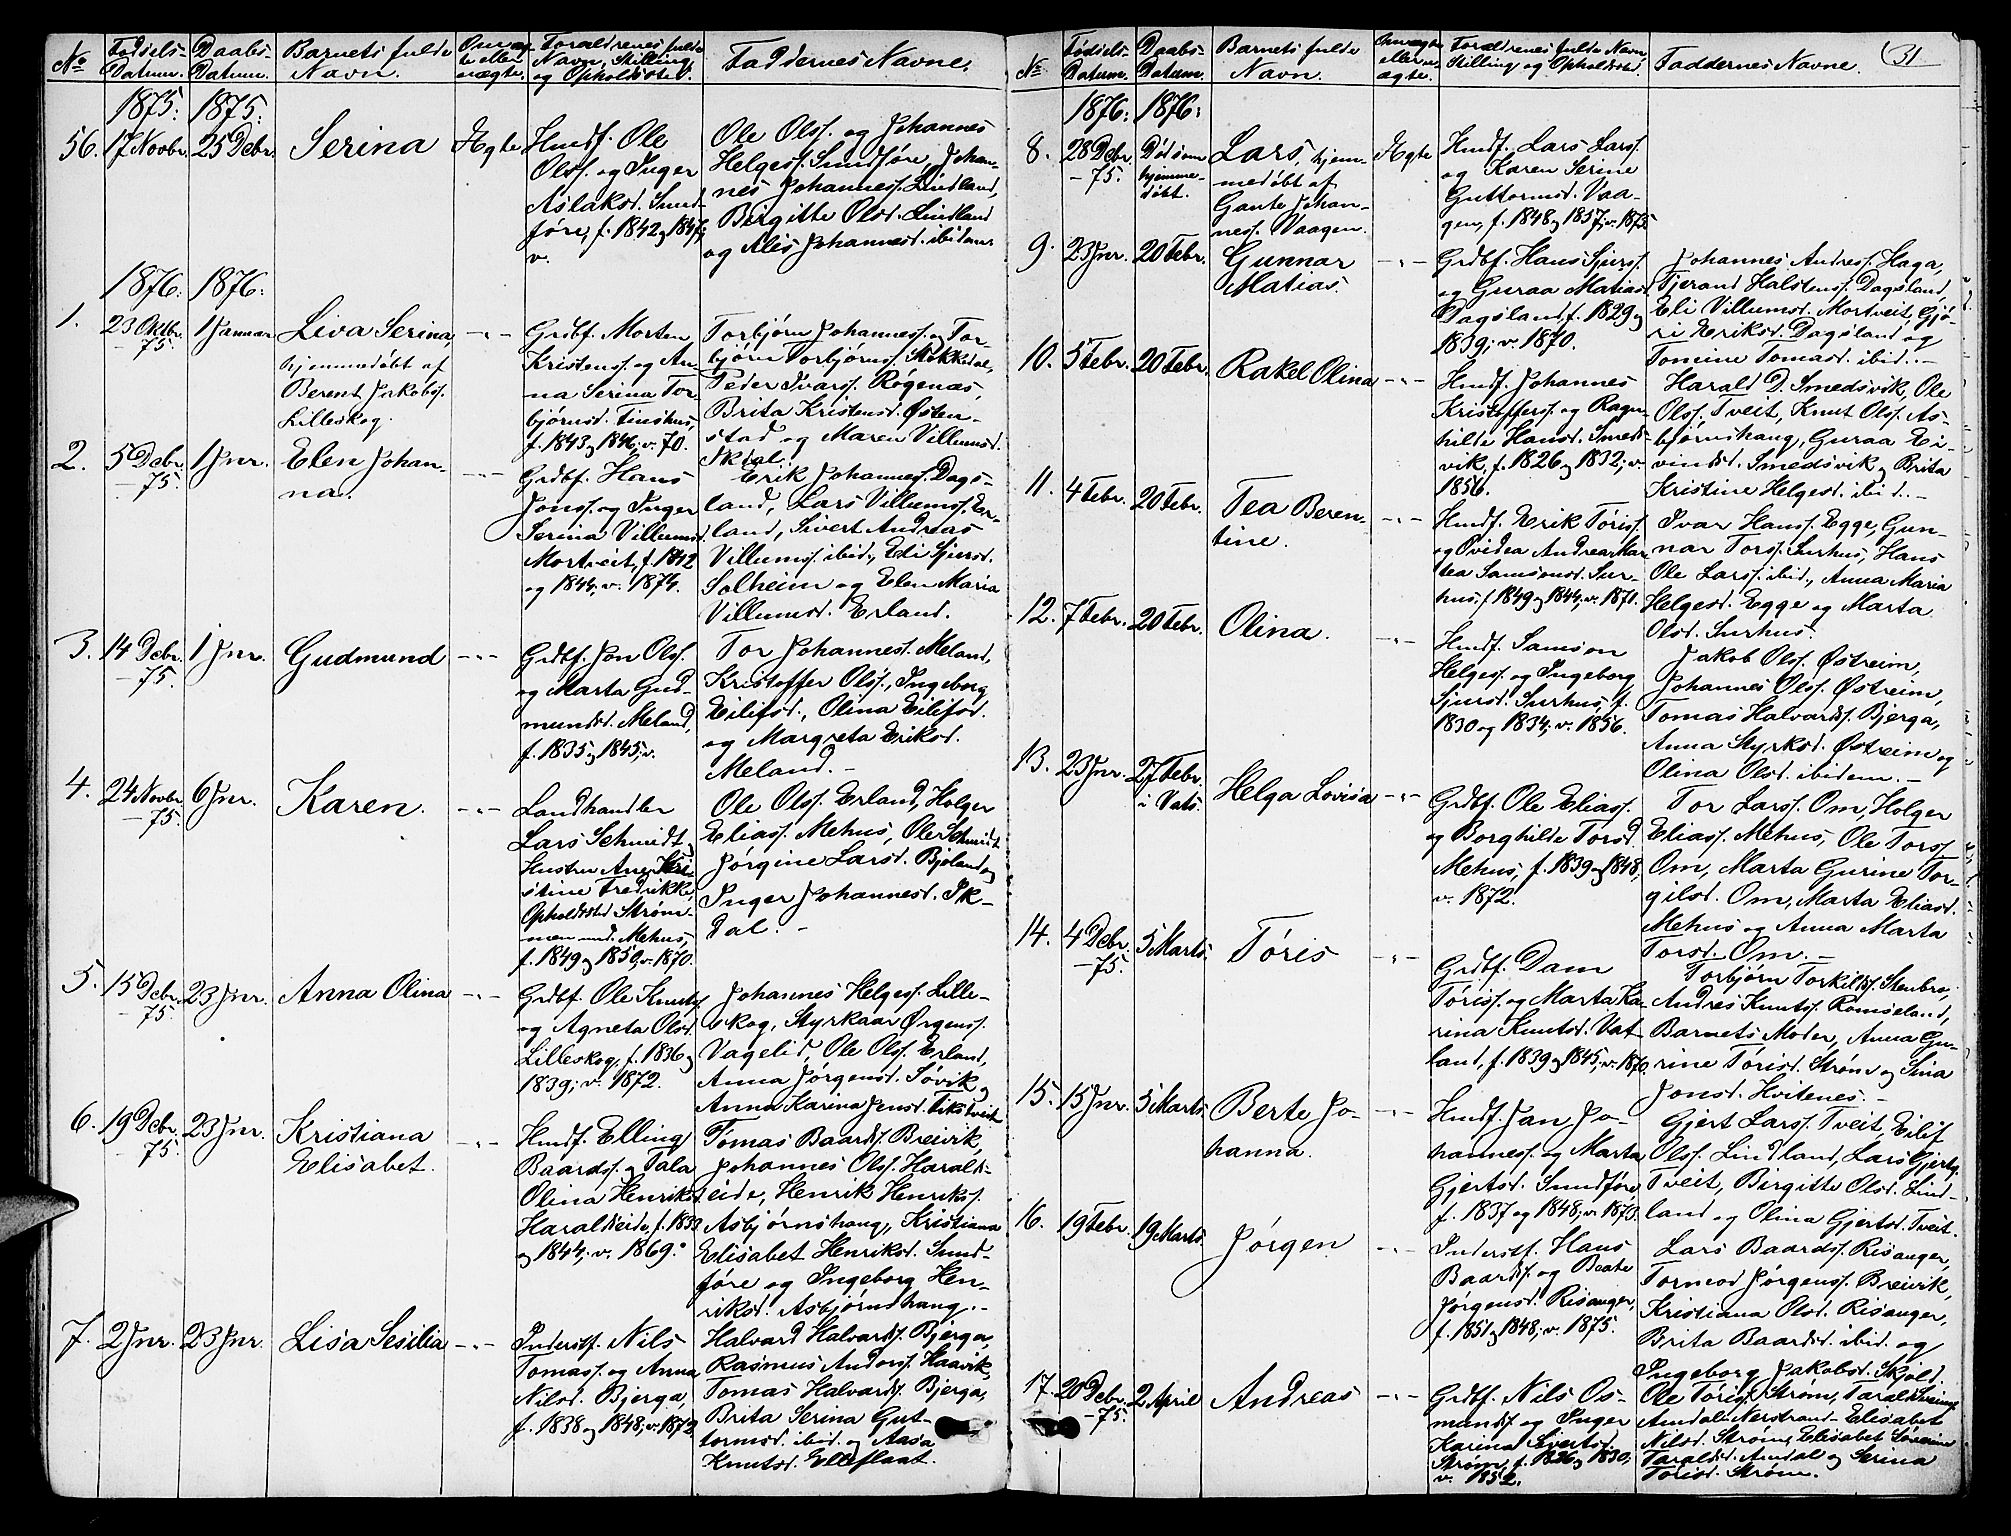 No
Fødsels-
Datum.
Daabs-
Datum.
Barnets fulde
Navn.
Om æg-
te eller
uægte.
Forældrenes fulde
Navn, Stilling
og Opholdssted.
Faddernes Navne.
1875: 1875:
56. 17 Novbr. 25 Debr. Serina Ægte
Hmdf. Ole
Olss. og Inger
Aslaksd. Sund-
føre, f. 1842 og 1847;
v.
Ole Olss. og Johannes
Helgess. Sundføre, Johan-
nes Johanness. Lindland,
Birgitte Olsd. Lindland
og Alis Johannesd. ibidem.
1876: 1876:
1. 23 Oktbr. 1 Januar Liva Serina
-75.
hjemmedøbt af
Berent Jakobss.
Lilleskog.
Grdbf. Morten
Kristenss. og An-
na Serina Tor-
bjørnsd. Tinshus,
f. 1843 og 1846; v. 70.
Torbjørn Johanness. og Tor-
bjørn Torbjørnss. Stokkedal,
Peder Ivarss. Røgenæs,
Brita Kristensd. Østen-
stad og Maren Villumsd.
Skjol.
2. 5 Debr. 1 Jnr. Elen Johan-
-75. na.
Grdbf. Hans
Jonss. og Inger
Serina Villumsd.
Mortveit, f. 1842
og 1844; v. 1874.
Erik Johanness. Dags-
land, Lars Villumss. Er-
land, Sivert Andreas
Villumss. ibid., Eli Sjursd.
Solheim og Elen Maria
Villumsd. Erland.
3. 14 Debr. 1 Jnr. Gudmund
-75.
Grdbf. Jon Olss.
og Marta Gud-
mundsd. Meland,
f. 1835 og 1845; v.
Tor Johanness. Meland,
Kristoffer Olss., Ingeborg
Eilifsd., Olina Eilifsd.
og Margreta Eriksd.
Meland. -
4. 24 Novbr. 6 Jnr. Karen.
-75.
Landhandler
Lars Schmidt og
Hustru Ane Kri-
stine Fredrikke,
Opholdssted Strøm-
men und. Mehus,
f. 1849 og 1850, v. 1870.
Ole Olss. Erland, Holger
Eliass. Mehus, Ole Schmidt
Jørgine Larsd. Bjoland og
Inger Johannesd. Ik-
dal. -
5. 15 Debr. 23 Jnr. Anna Olina
-75.
Grdbf. Ole Knuts.
og Agneta Olsd.
Lilleskog, f. 1836 og
1839; v. 1872.
Johannes Helgess. Lille-
skog, Styrkaar Ørgenss.
Vagelid, Ole Olss. Erland,
Anna Jørgensd. Søvik og
Anna Karina Jensd. Tikstveit
6. 19 Debr. 23 Jnr. Kristiana
-75. Elisabet.
Hmdf. Elling
Baardss. og Tala
Olina Henriksd.
Haraldseide, f. 1832
og 1844; v. 1869.
Tomas Baardss. Breivik,
Johannes Olss. Harald-
seide, Henrik Henrikss.
Asbjørnshaug, Kristiana
Elisabet Henriksd. Sund-
føre og Ingeborg Hen-
riksd. Asbjørnshaug. -
7. 2 Jnr. 23 Jnr. Lisa Sesilia
Inderstf. Nils
Tomass. og Anna
Nilsd. Bjerga,
f. 1838 og 1848; v. 1872
Halvard Halvardss. Bjerga,
Rasmus Anderss. Haavik,
Tomas Halvardss. Bjerga,
Brita Serina Gut-
tormsd. ibid. og Aasa
Knutsd. Elleflaat.
31.
No
Fødsels-
Datum.
Daabs-
Datum.
Barnets fulde
Navn.
Om ægte
eller u-
ægte.
Forældrenes fulde Navn,
Stilling og Opholdssted.
Faddernes Navne.
1876: 1876:
8. 28 Debr. Død som Lars, hjem- Ægte
-75. hjemme- medøbt af
døbt. Gante Johan-
ness. Vaagen.
Hmdf. Lars Larss.
og Karen Serine
Guttormsd. Vaa-
gen, f. 1848 og 1857; v. 1875
9. 23 Jnr. 20 Febr. Gunnar
Matias.
Grdbf. Hans Sjurss.
og Guraa Matiasd.
Dagsland, f. 1829 og
1839; v. 1870.
Johannes Andress. Haga,
Tjerand Halstenss. Dagsland,
Eli Villumsd. Mortveit, Gjø-
ri Eriksd. Dagsland og
Tomine Tomasd. ibid. -
10. 5 Febr. 20 Febr. Rakel Olina
Hmdf. Johannes
Kristofferss. og Ragn-
hilde Hansd. Smeds-
vik, f. 1826 og 1832; v.
1856.
Harald D. Smedsvik, Ole
Olss. Tveit, Knut Olss. As-
bjørnshaug, Guraa Ei-
vindsd. Smedsvik og Brita
Kristine Helgesd. ibid. -
11. 4 Febr. 20 Febr. Tea Beren-
tine.
Hmdf. Erik Tøriss.
og Ovidea Andrea Mar-
tea Samsonsd. Sur-
hus, f. 1849 og 1844; v. 1871.
Ivar Hanss. Egge, Gun-
nar Torss. Surhus, Hans
Ole Larss. ibid., Anna Maria
Helgesd. Egge og Marta
Olsd. Surhus.
12. 7 Febr. 20 Febr. Olina.
Hmdf. Samson
Helgess. og Ingeborg
Sjursd. Surhus, f.
1830 og 1834; v. 1856.
Jakob Olss. Østreim,
Johannes Olss. Østreim,
Tomas Halvardss. Bjerga,
Anna Styrksd. Østreim og
Olina Olsd. ibidem. -
13. 23 Jnr. 27 Febr. Helga Lovisa
i Vats.
Grdbf. Ole Eliass.
og Borghilde Torsd.
Mehus, f. 1839 og 1848,
v. 1872.
Tor Larss. Om, Holger
Eliass. Mehus, Ole Torss.
Om, Marta Gurine Tor-
gilsd. Om, Marta Eliasd.
Mehus og Anna Marta
Torsd. Om. -
14. 4 Debr. 5 Marts. Tøris
-75.
Grdbf. Dam
Tøriss. og Marta Ka-
rina Knutsd. Vat-
land, f. 1839 og 1845; v. 1870.
Torbjørn Torkildss. Stenbro,
Andres Knutss. Romseland,
Barnets Moder, Anna Gu-
rine Tørisd. Strøm og Sina
Jonsd. Hvitenes. -
15. 15 Jnr. 5 Marts. Berte Jo-
hanna.
Hmdf. Jan Jo-
hanness. og Marta
Gjertsd. Sundføre,
f. 1837 og 1848; v. 1873.
Gjert Larss. Tveit, Eilif
Olss. Lindland, Lars Gjertss.
Tveit, Birgitte Olsd. Lind-
land og Olina Gjertsd. Tveit.
16. 19 Febr. 19 Marts. Jørgen
Inderstf. Hans
Baardss. og Beate
Jørgensd. Risanger,
f. 1851 og 1848; v. 1875.
Lars Baardss. Risanger,
Tormod Jørgenss. Breivik,
Kristiana Olsd. Risanger,
Brita Baardsd. ibid. og
Ingeborg Jakobsd. Skjold.
17. 20 Debr. 2 April Andreas
-75.
Grdbf. Nils Os-
mundss. og Inger
Karina Sivertsd.
Strøm, f. 1826 og 1830,
v. 1852.
Ole Tøriss. Strøm, Tarald
Amdal Nerstrand, Elisabet
Nilsd. Strøm, Elisabet Severine
Taraldsd. Amdal og Serina
Tørisd. Strøm.